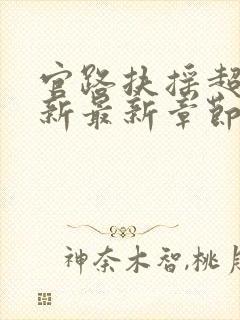 官路扶摇超
新最新章节
神奈木智,桃月